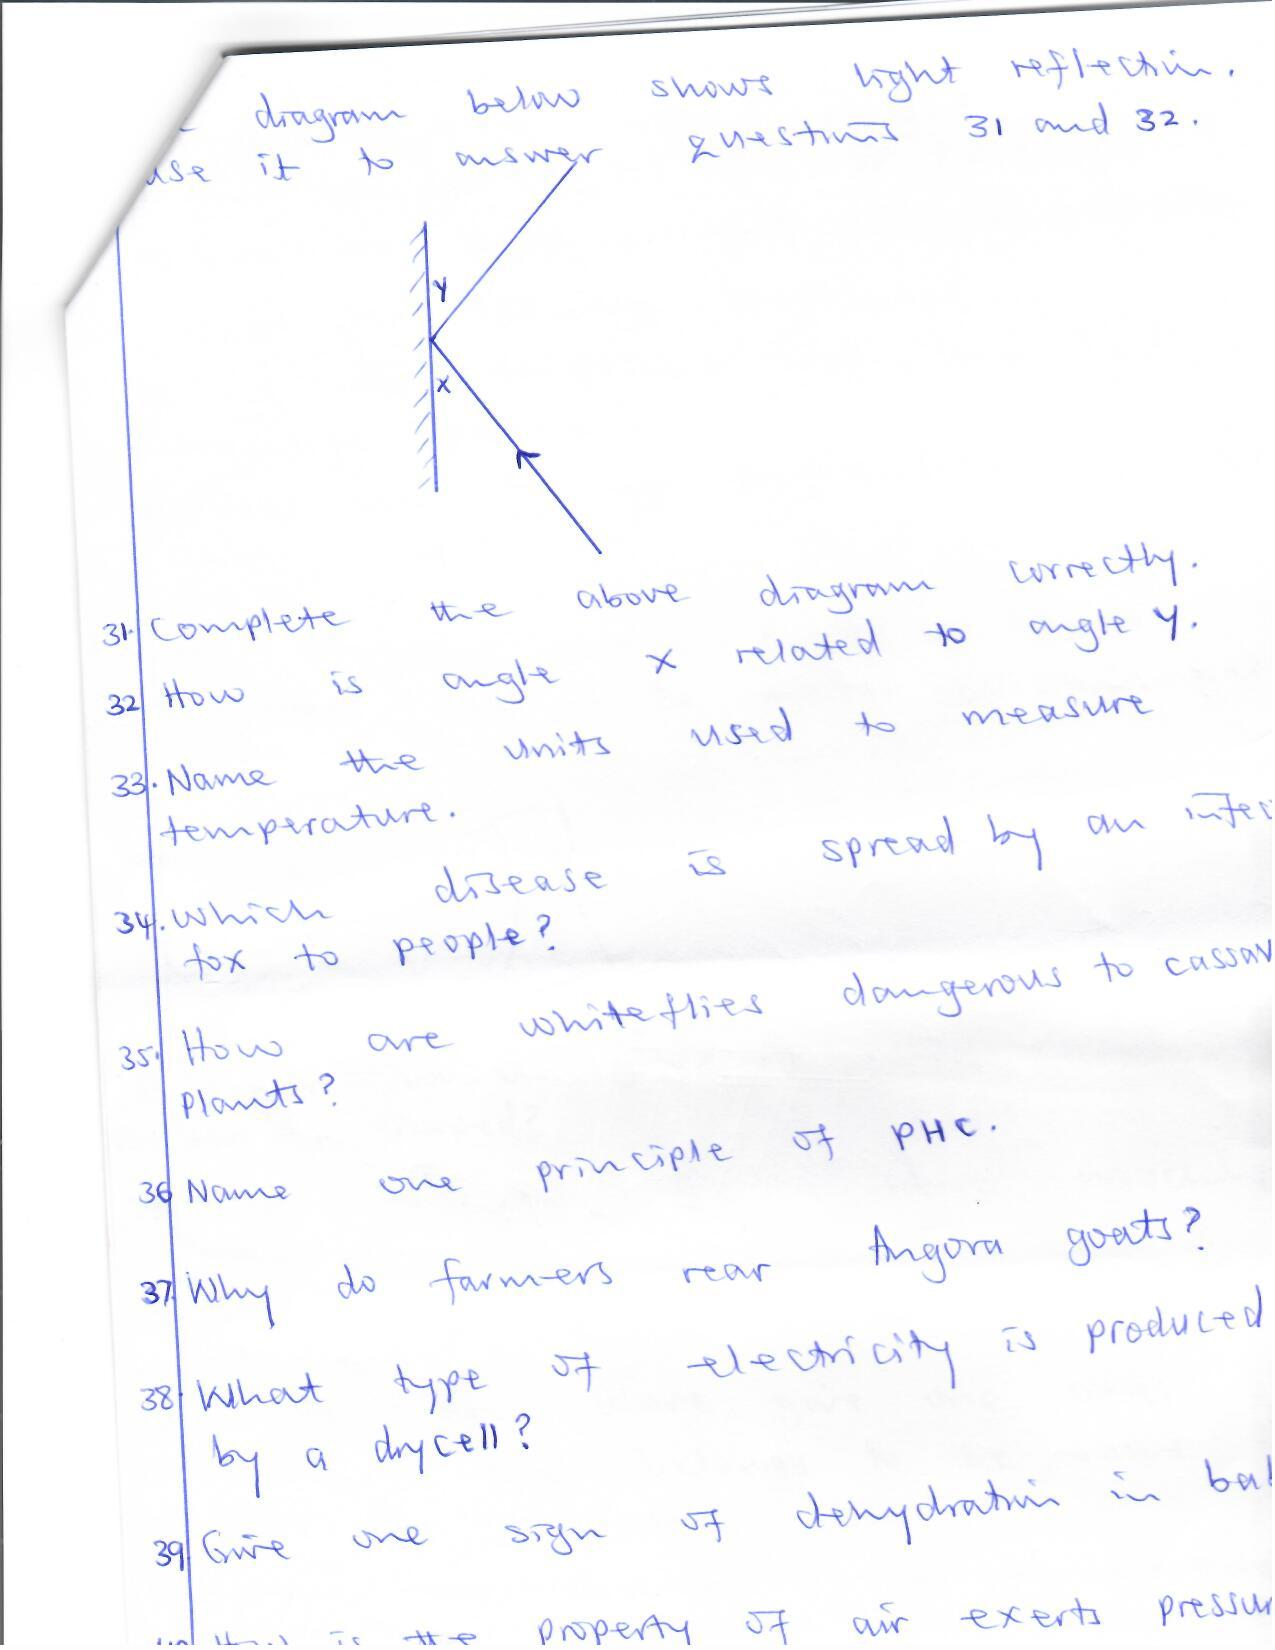 diagram below shows light reflection.
use it to answer questions 31 and 32.
Y
X
31. Complete the above diagram correctly.
32 How is angle X related to angle Y.
33. Name the units used to measure
temperature.
34. Which disease is spread by an infec
fox to people?
35. How are whiteflies dangerous to cassav
Plants?
36 Name one principle of PHC.
37. Why do farmers rear Angora goats?
38. What type of electricity is produced
by a drycell?
39 Give one sign of dehydration in bab
How is the property of air exerts pressur